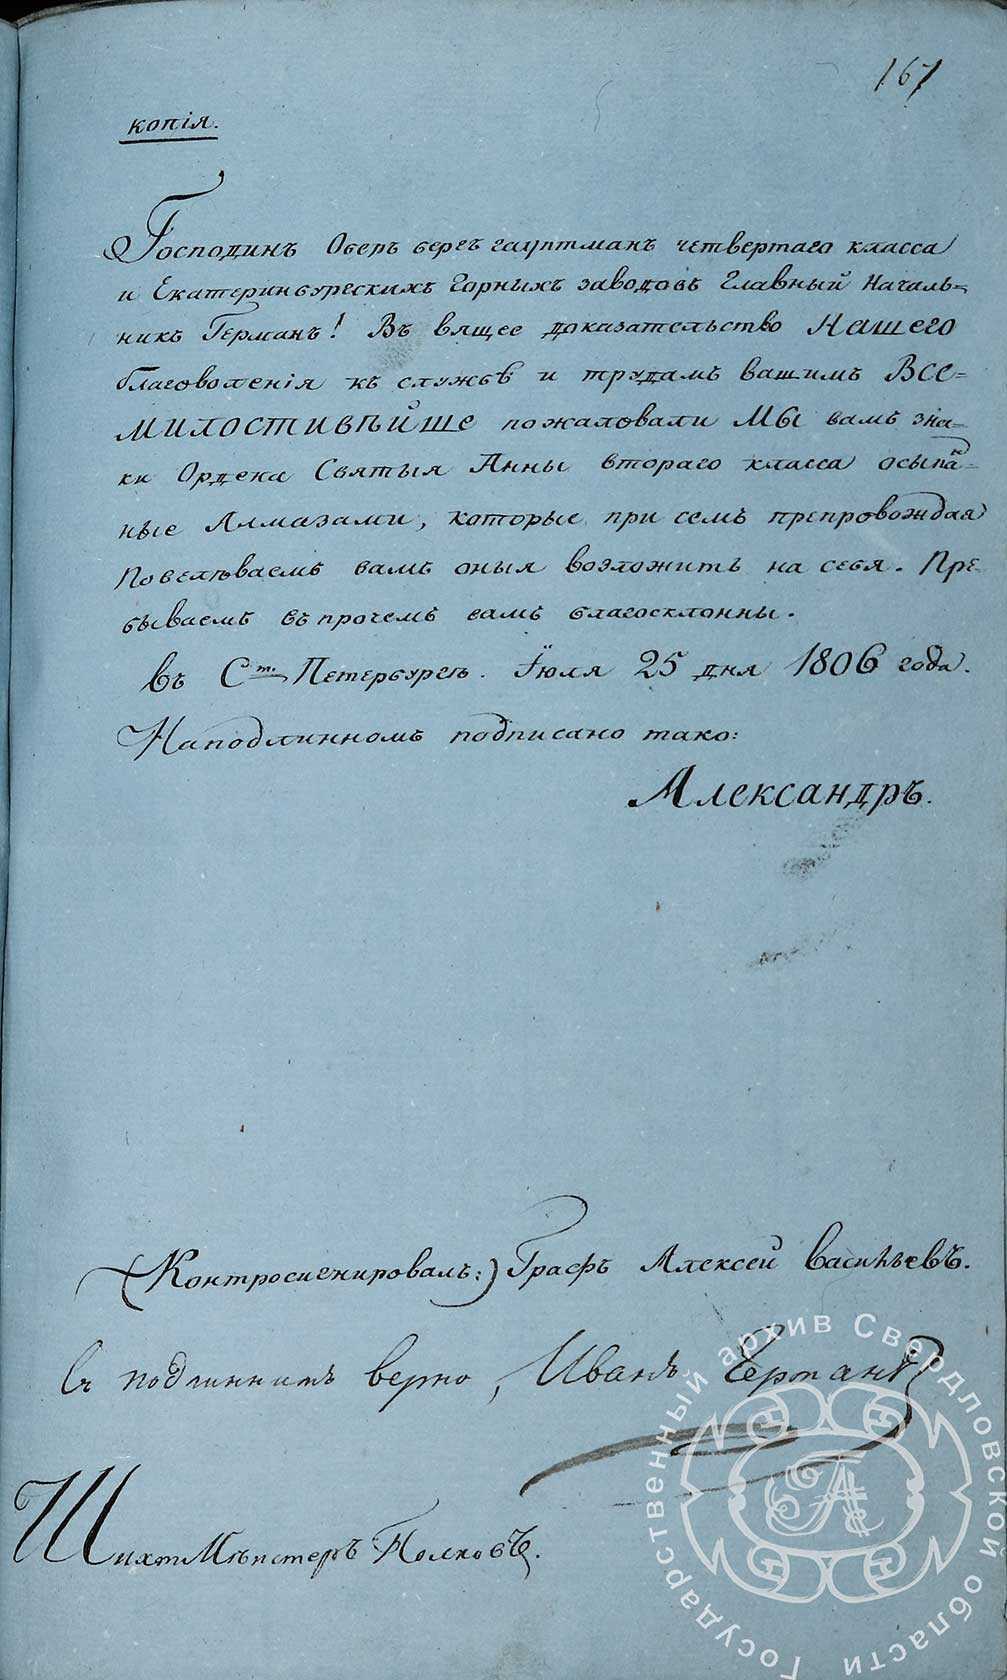 167
копія.
Господинъ Оберъ бергъ гауптманъ четвертаго класса
и Екатеринбургскихъ Горныхъ заводовъ Главный Началь-
никъ Германъ! Въ вящее доказательство Нашего
благоволенія къ службѣ и трудамъ вашимъ ВСЕ-
МИЛОСТИВѢЙШЕ пожаловали МЫ вамъ зна-
ки Ордена Святыя Анны втораго класса осыпан-
ные Алмазами, которые при семъ препровождая
Повелѣваемъ вамъ оныя возложить на себя. Пре
бываемъ въ прочемъ вамъ благосклонны.
въ Ст. Петербургѣ. Іюля 25 дня 1806 года.
На подлинномъ подписано тако:
Александръ.
(Контросигнировалъ:) Графъ Алексей Васильевъ.
Съ подлиннимъ верно, Иванъ Германъ
Шихтмѣистеръ Полковъ.
Государственный архив Свердловской области
ГА